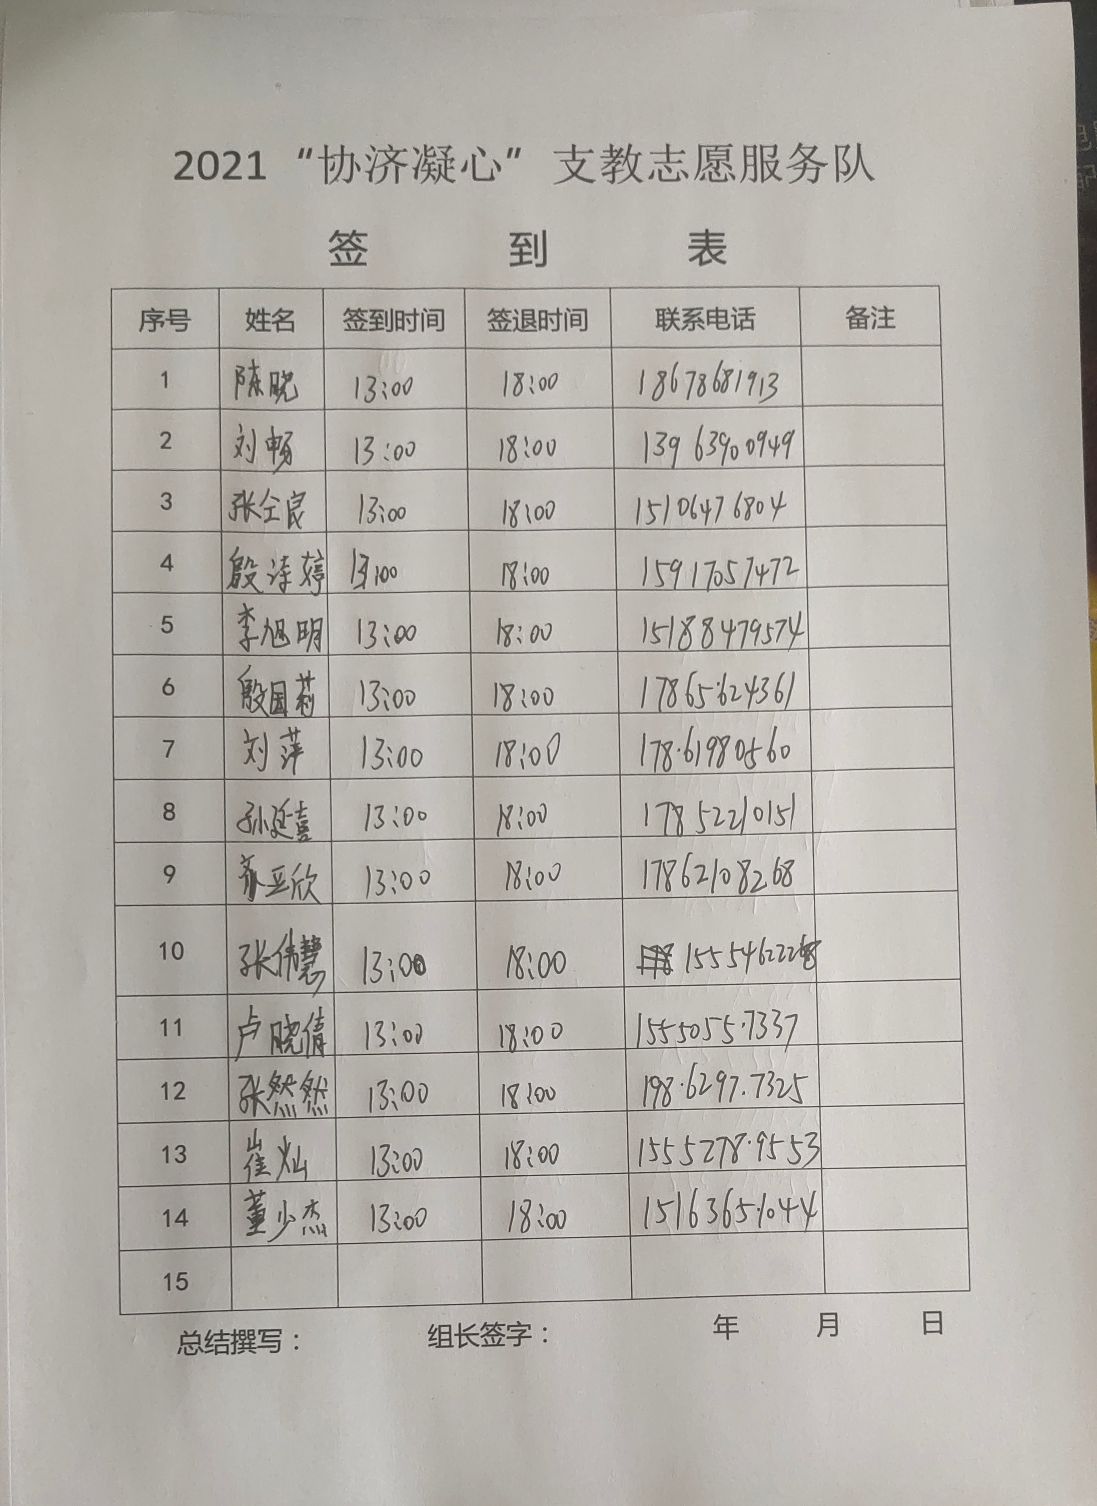 2021 “协济凝心”支教志愿服务队
签 到 表
序号 姓名 签到时间 签退时间 联系电话 备注
1 陈晓 13:00 18:00 18678681913
2 刘畅 13:00 18:00 13963900949
3 张仝良 13:00 18:00 15106476804
4 殷诗婷 13:00 18:00 15917057472
5 李旭明 13:00 18:00 15188479574
6 殷国莉 13:00 18:00 17865624361
7 刘萍 13:00 18:00 178.61980560
8 孙延喜 13:00 18:00 17852210151
9 亚欣 13:00 18:00 17862108268
10 张伟慧 13:00 18:00
11 卢晓倩 13:00 18:00 1555055.7337
12 张然然 13:00 18:00 198.6297.7325
13 崔灿 13:00 18:00 1555278.9553
14 董少杰 13:00 18:00 15163651044
15
总结撰写： 组长签字： 年 月 日